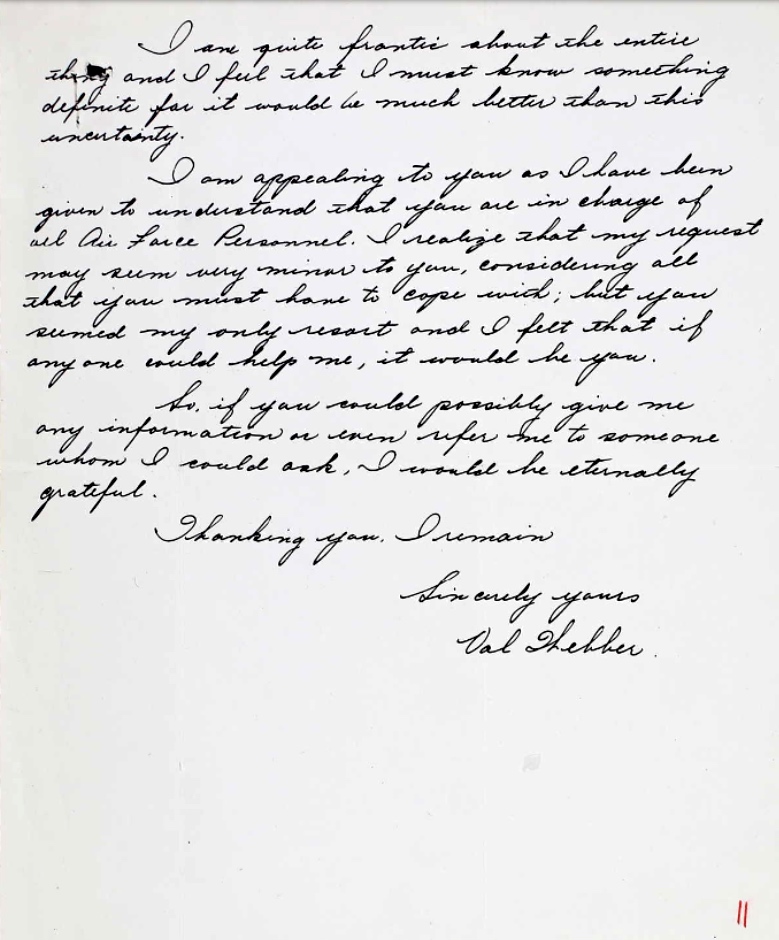 I am quite frantic about the entire
thing and I feel that I must know something
definite for it would be much better than this
uncertainty.
I am appealing to you as I have been
given to understand that you are in charge of
all Air Force Personnel. I realize that my request
may seem very minor to you, considering all
that you must have to cope with; but you
seemed my only resort and I felt that if
anyone could help me, it would be you.
So, if you could possibly give me
any information or even refer me to someone
whom I could ask, I would be eternally
grateful.
Thanking you, I remain
Sincerely yours
Val Thebber.
11